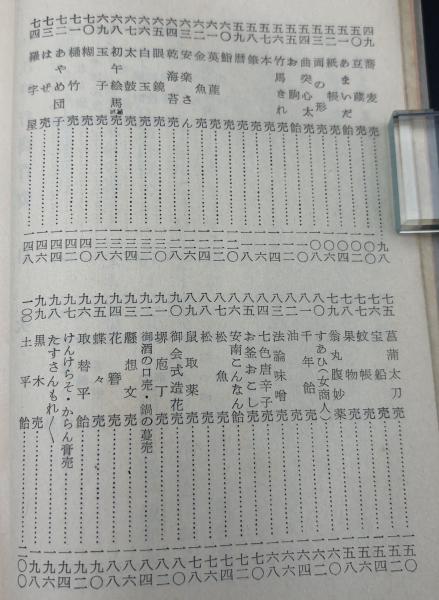 四九 蕎麦売……九八
五〇 豆蔵……一〇〇
五一 あまいだ飴売……一〇二
五二 紙帳売……一〇四
五三 両面の形……一〇六
五四 曲突心太売……一〇八
五五 お駒飴売……一一〇
五六 竹馬きれ売……一一二
五七 本売……一一四
五八 売……一一六
五九 暦売……一一八
六〇 飴売……一二〇
六一 英蓮……一二二
六二 金魚売……一二四
六三 安楽さん……一二六
六四 乾海苔売……一二八
六五 眼鏡売……一三〇
六六 白玉売……一三二
六七 太鼓売……一三四
六八 初午絵馬売……一三六
六九 玉子売……一三八
七〇 糊売……一四〇
七一 桶竹売……一四二
七二 あやめ団子……一四四
七三 はぜ売……一四六
七四 羅宇屋……一四八
七五 菖蒲太刀売……一五〇
七六 宝船売……一五二
七七 蚊帳売……一五四
七八 果物売……一五六
七九 翁丸腹妙薬……一五八
八〇 すあひ(女商人)……一六〇
八一 千年飴……一六二
八二 油売……一六四
八三 法論味噌売……一六六
八四 七色唐辛子……一六八
八五 お釜おこし売……一七〇
八六 安南こんなん飴……一七二
八七 松魚売……一七四
八八 松売……一七六
八九 鼠取薬売……一七八
九〇 御会式造花売……一八〇
九一 堺庖丁売……一八二
九二 御酒の口売・鍋の蔓売……一八四
九三 懸想文売……一八六
九四 花簪売……一八八
九五 蝶々売……一九〇
九六 取替平飴……一九二
九七 けんけらそ・からん膏売……一九四
九八 たすさんもれ〳〵……一九六
九九 黒木売……一九八
一〇〇 土平飴……二〇〇